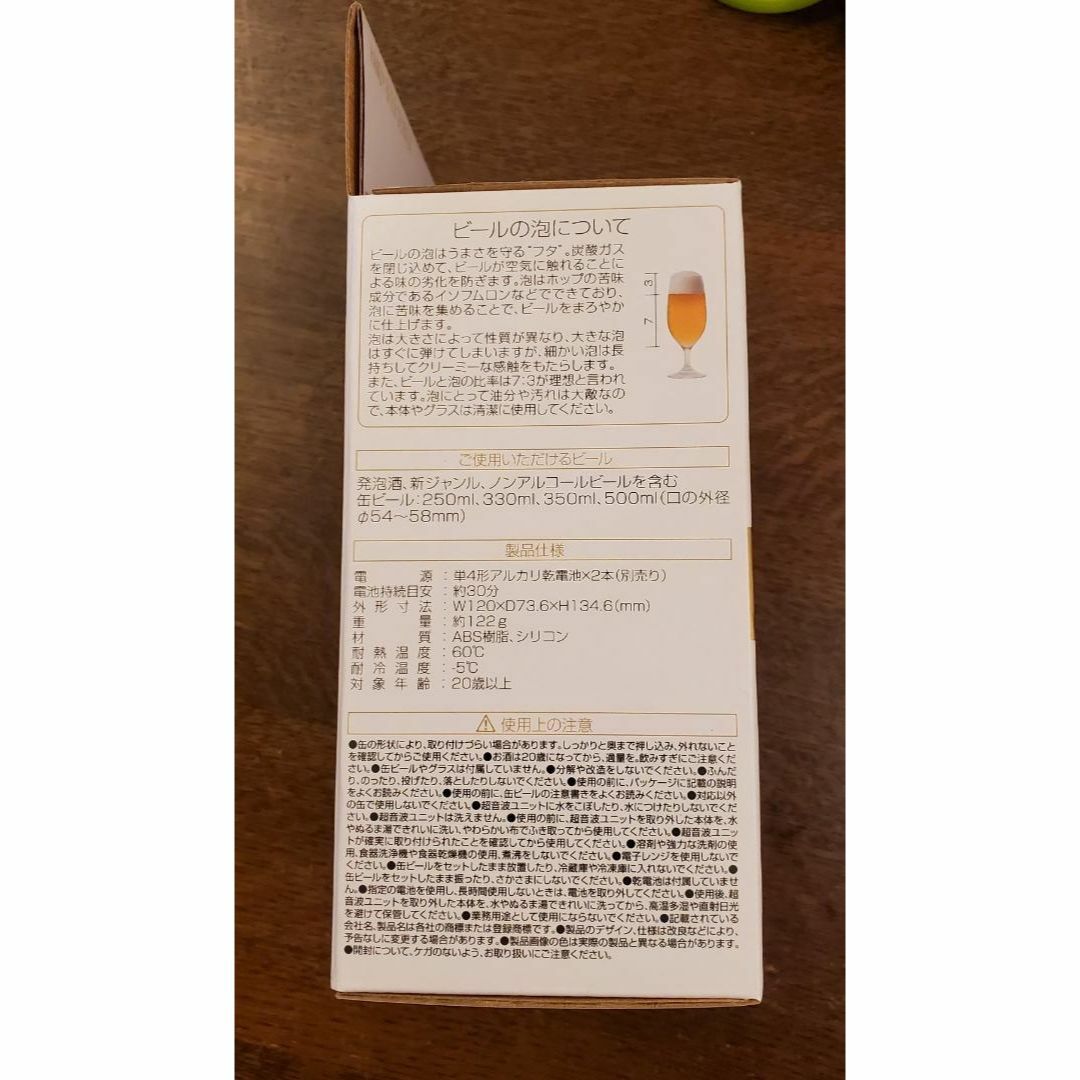 ビールの泡について
ビールの泡はうまさを守る“フタ”。炭酸ガス
を閉じ込めて、ビールが空気に触れることに
よる味の劣化を防ぎます。泡はホップの苦味
成分であるイソフムロンなどでできており、
泡に苦味を集めることで、ビールをまろやか
に仕上げます。
泡は大きさによって性質が異なり、大きな泡
はすぐに弾けてしまいますが、細かい泡は長
持ちしてクリーミーな感触をもたらします。
また、ビールと泡の比率は7:3が理想と言われ
ています。泡にとって油分や汚れは大敵なの
で、本体やグラスは清潔に使用してください。
3
7
ご使用いただけるビール
発泡酒、新ジャンル、ノンアルコールビールを含む
缶ビール:250ml、330ml、350ml、500ml(口の外径
φ54〜58mm)
製品仕様
電源:単4形アルカリ乾電池×2本(別売り)
電池持続目安:約30分
外形寸法:W120×D73.6×H134.6(mm)
重量:約122g
材質:ABS樹脂、シリコン
耐熱温度:60℃
耐冷温度:-5℃
対象年齢:20歳以上
⚠使用上の注意
●缶の形状により、取り付けづらい場合があります。しっかりと奥まで押し込み、外れないこと
を確認してからご使用ください。●お酒は20歳になってから、適量を。飲みすぎにご注意くだ
さい。●缶ビールやグラスは付属していません。●分解や改造をしないでください。●ふんだ
り、のったり、投げたり、落としたりしないでください。●使用の前に、パッケージに記載の説明
をよくお読みください。●使用の前に、缶ビールの注意書きをよくお読みください。●対応以外
の缶で使用しないでください。●超音波ユニットに水をこぼしたり、水につけたりしないでくだ
さい。●超音波ユニットは洗えません。●使用の前に、超音波ユニットを取り外した本体を、水
やぬるま湯できれいに洗い、やわらかい布でふき取ってから使用してください。●超音波ユニッ
トが確実に取り付けられたことを確認してから使用してください。●溶剤や強力な洗剤の使
用、食器洗浄機や食器乾燥機の使用、煮沸をしないでください。●電子レンジを使用しないで
ください。●缶ビールをセットしたまま放置したり、冷蔵庫や冷凍庫に入れないでください。●
缶ビールをセットしたまま振ったり、さかさまにしないでください。●乾電池は付属していませ
ん。●指定の電池を使用し、長時間使用しないときは、電池を取り外してください。●使用後、超
音波ユニットを取り外した本体を、水やぬるま湯できれいに洗ってから、高温多湿や直射日光
を避けて保管してください。●業務用途として使用にならないでください。●記載されている
会社名、製品名は各社の商標または登録商標です。●製品のデザイン、仕様は改良などにより、
予告なしに変更する場合があります。●製品画像の色は実際の製品と異なる場合があります。
●開封について、ケガのないよう、お取り扱いにご注意ください。